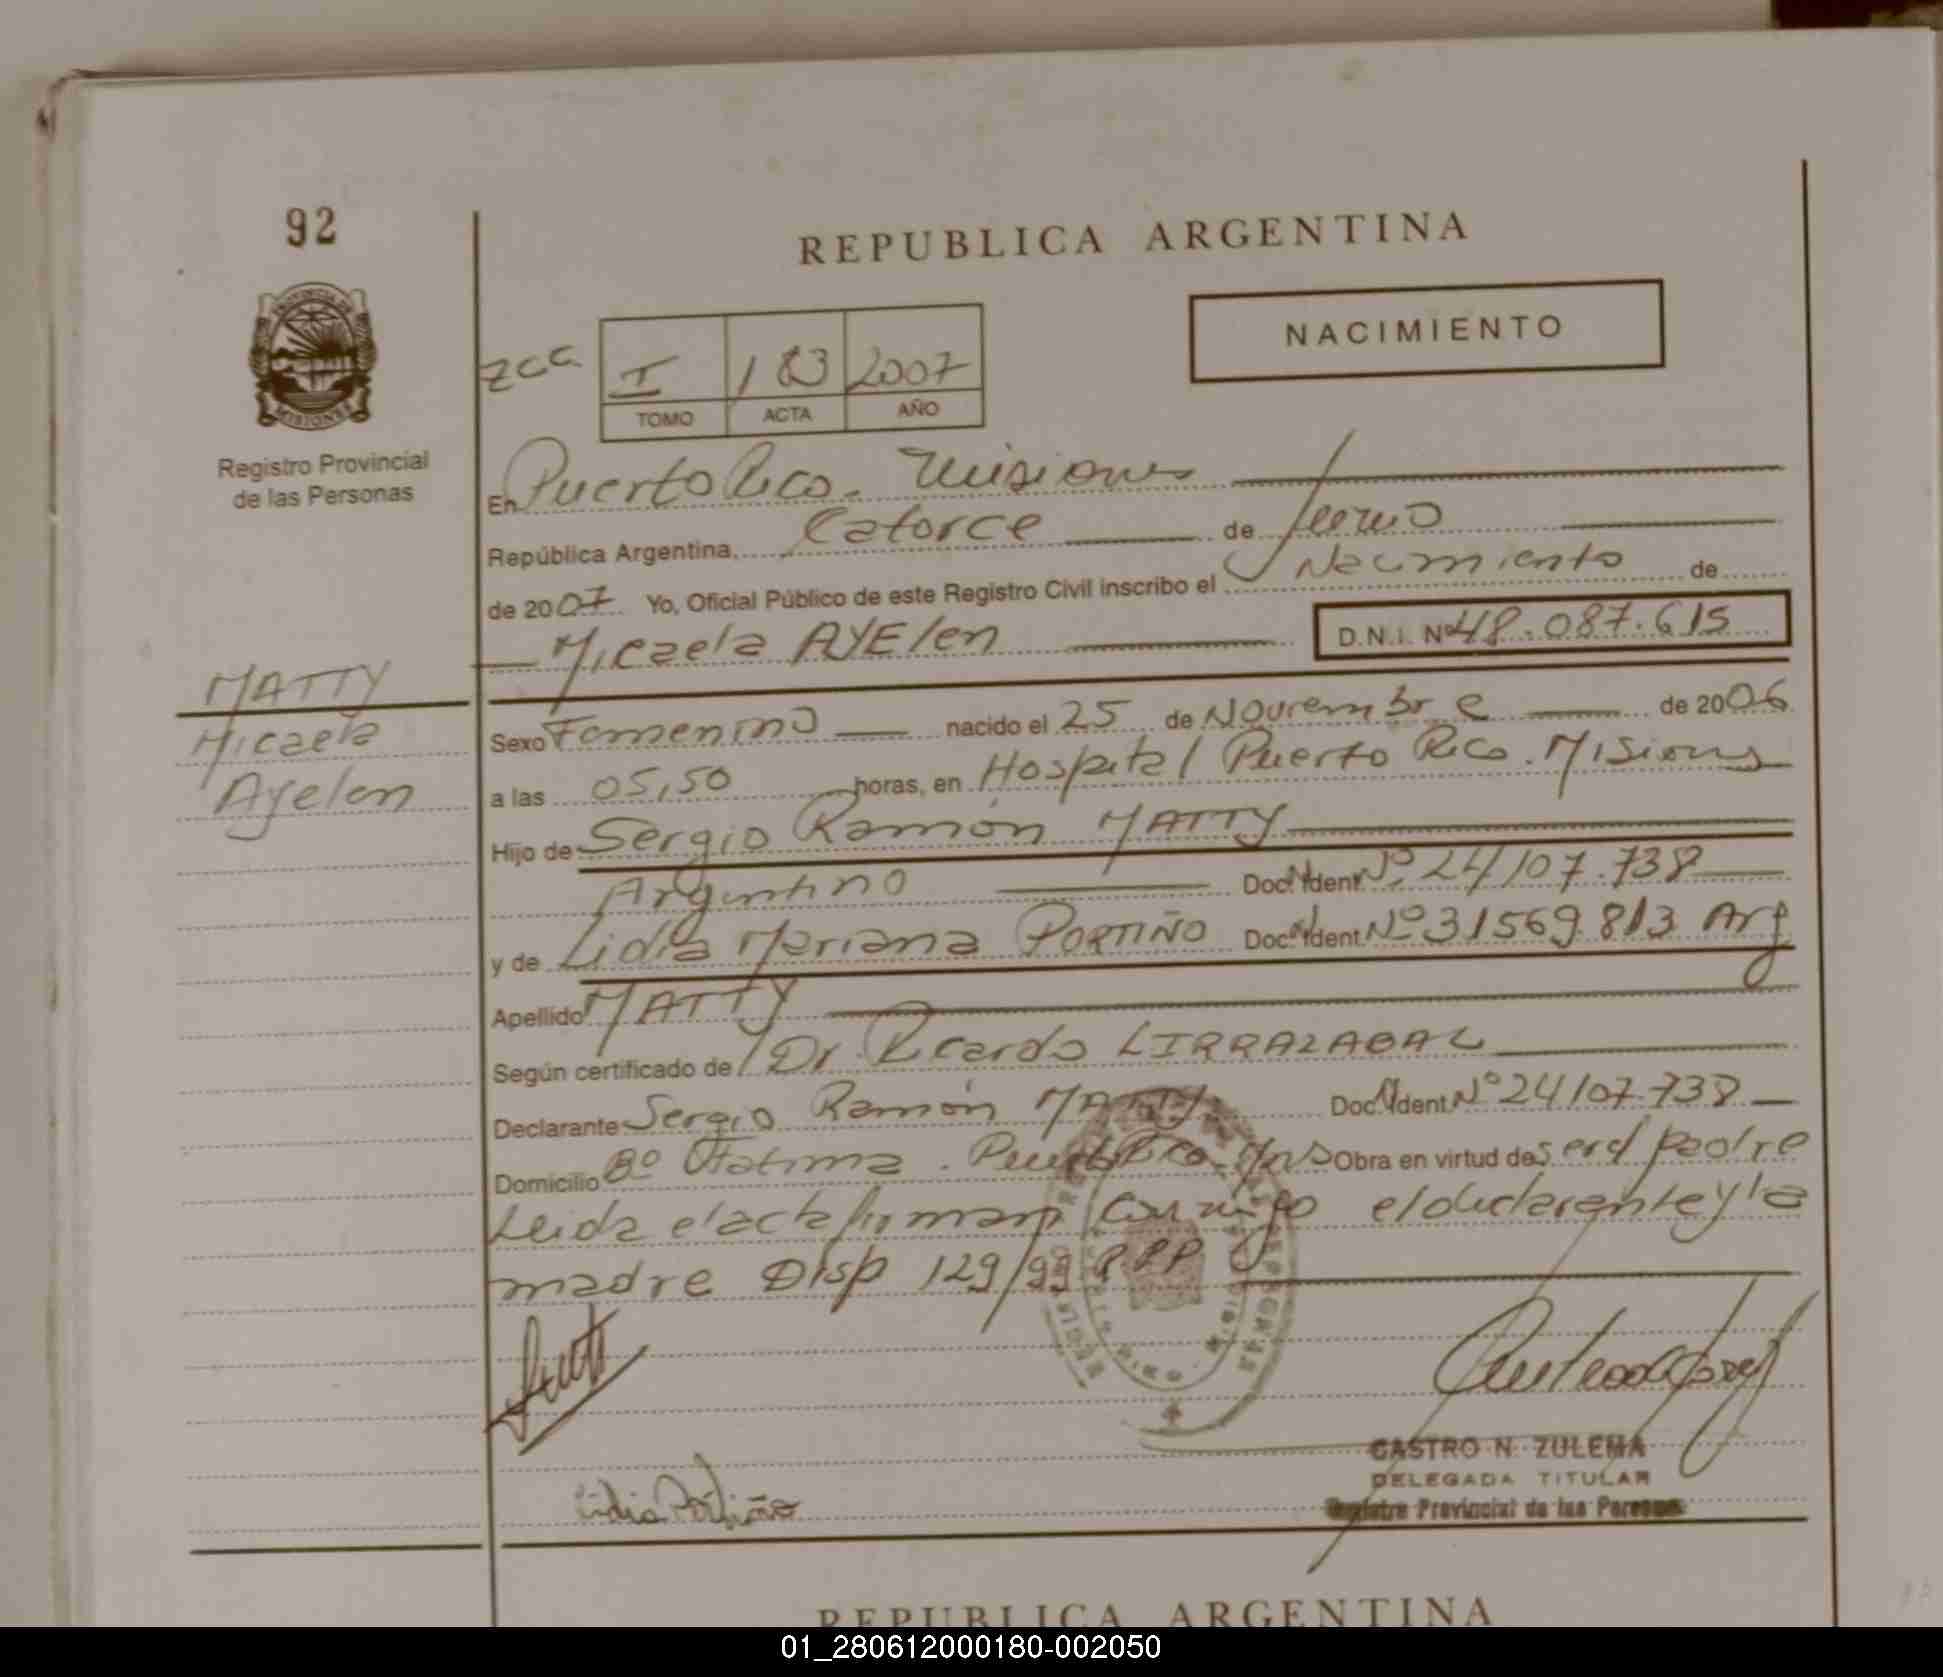 92
REPUBLICA ARGENTINA
NACIMIENTO
PROVINCIA DE
MISIONES
Registro Provincial
de las Personas
zca I 183 2007
TOMO ACTA AÑO
En Puerto Rico. Misiones
República Argentina, Catorce de Junio
de 2007 Yo, Oficial Público de este Registro Civil inscribo el Nacimiento de
Micaela AYElen D.N.I. Nº 48.087.615
MATTY
Micaela
Ayelen
Sexo Femenino nacido el 25 de Noviembre de 2006
a las 05,50 horas, en Hospital Puerto Rico. Misiones
Hijo de Sergio Ramón MATTY
Argentino Doc. Ident. Nº 24107.738
y de Lidia Mariana PORTIÑO Doc. Ident. Nº 31569.813 Arg
Apellido MATTY
Según certificado de Dr. Ricardo LIRRAZABAL
Declarante Sergio Ramón MATTY Doc. Ident. Nº 24107.738
Domicilio Bº Fatima. Puerto Rico. Mns Obra en virtud de ser el padre
Leida el acta firman conmigo el declarante y la
madre Disp 129/99 RPP
Lidia Portiño
CASTRO N. ZULEMA
DELEGADA TITULAR
Registro Provincial de las Personas
REPUBLICA ARGENTINA
01_280612000180-002050